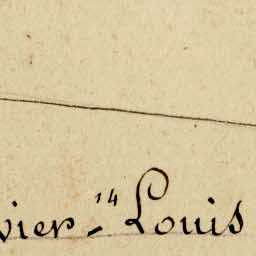 vier, 14 Louis